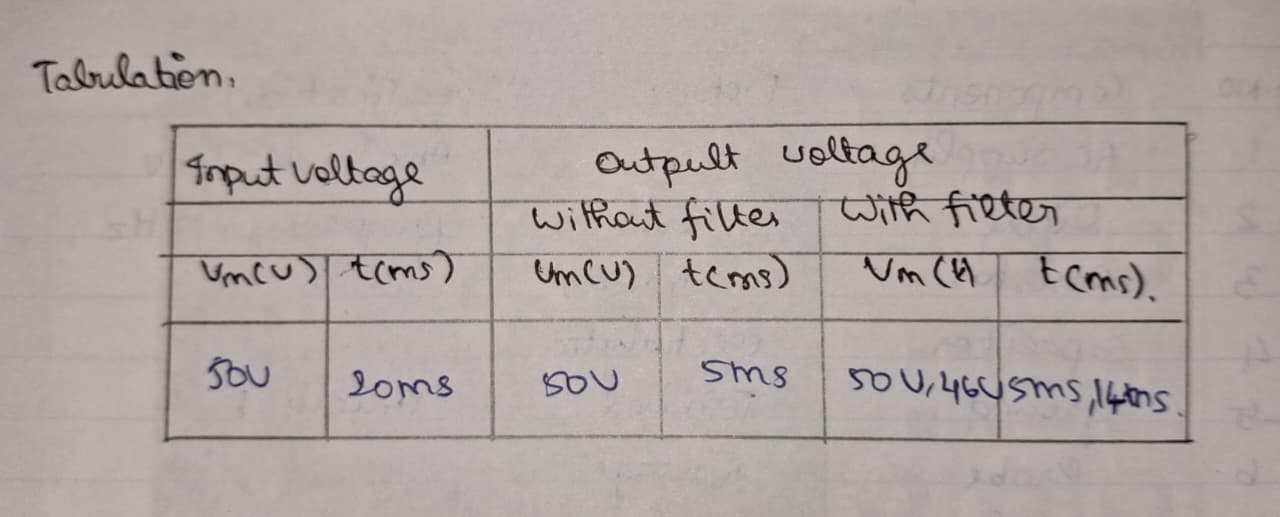 Tabulation.
Input voltage Outpult voltage
without filter With filter
Vm(V) t(ms) Vm(V) t(ms) Vm(V) t(ms).
50V 20ms 50V 5ms 50V,46V 5ms,14ms.